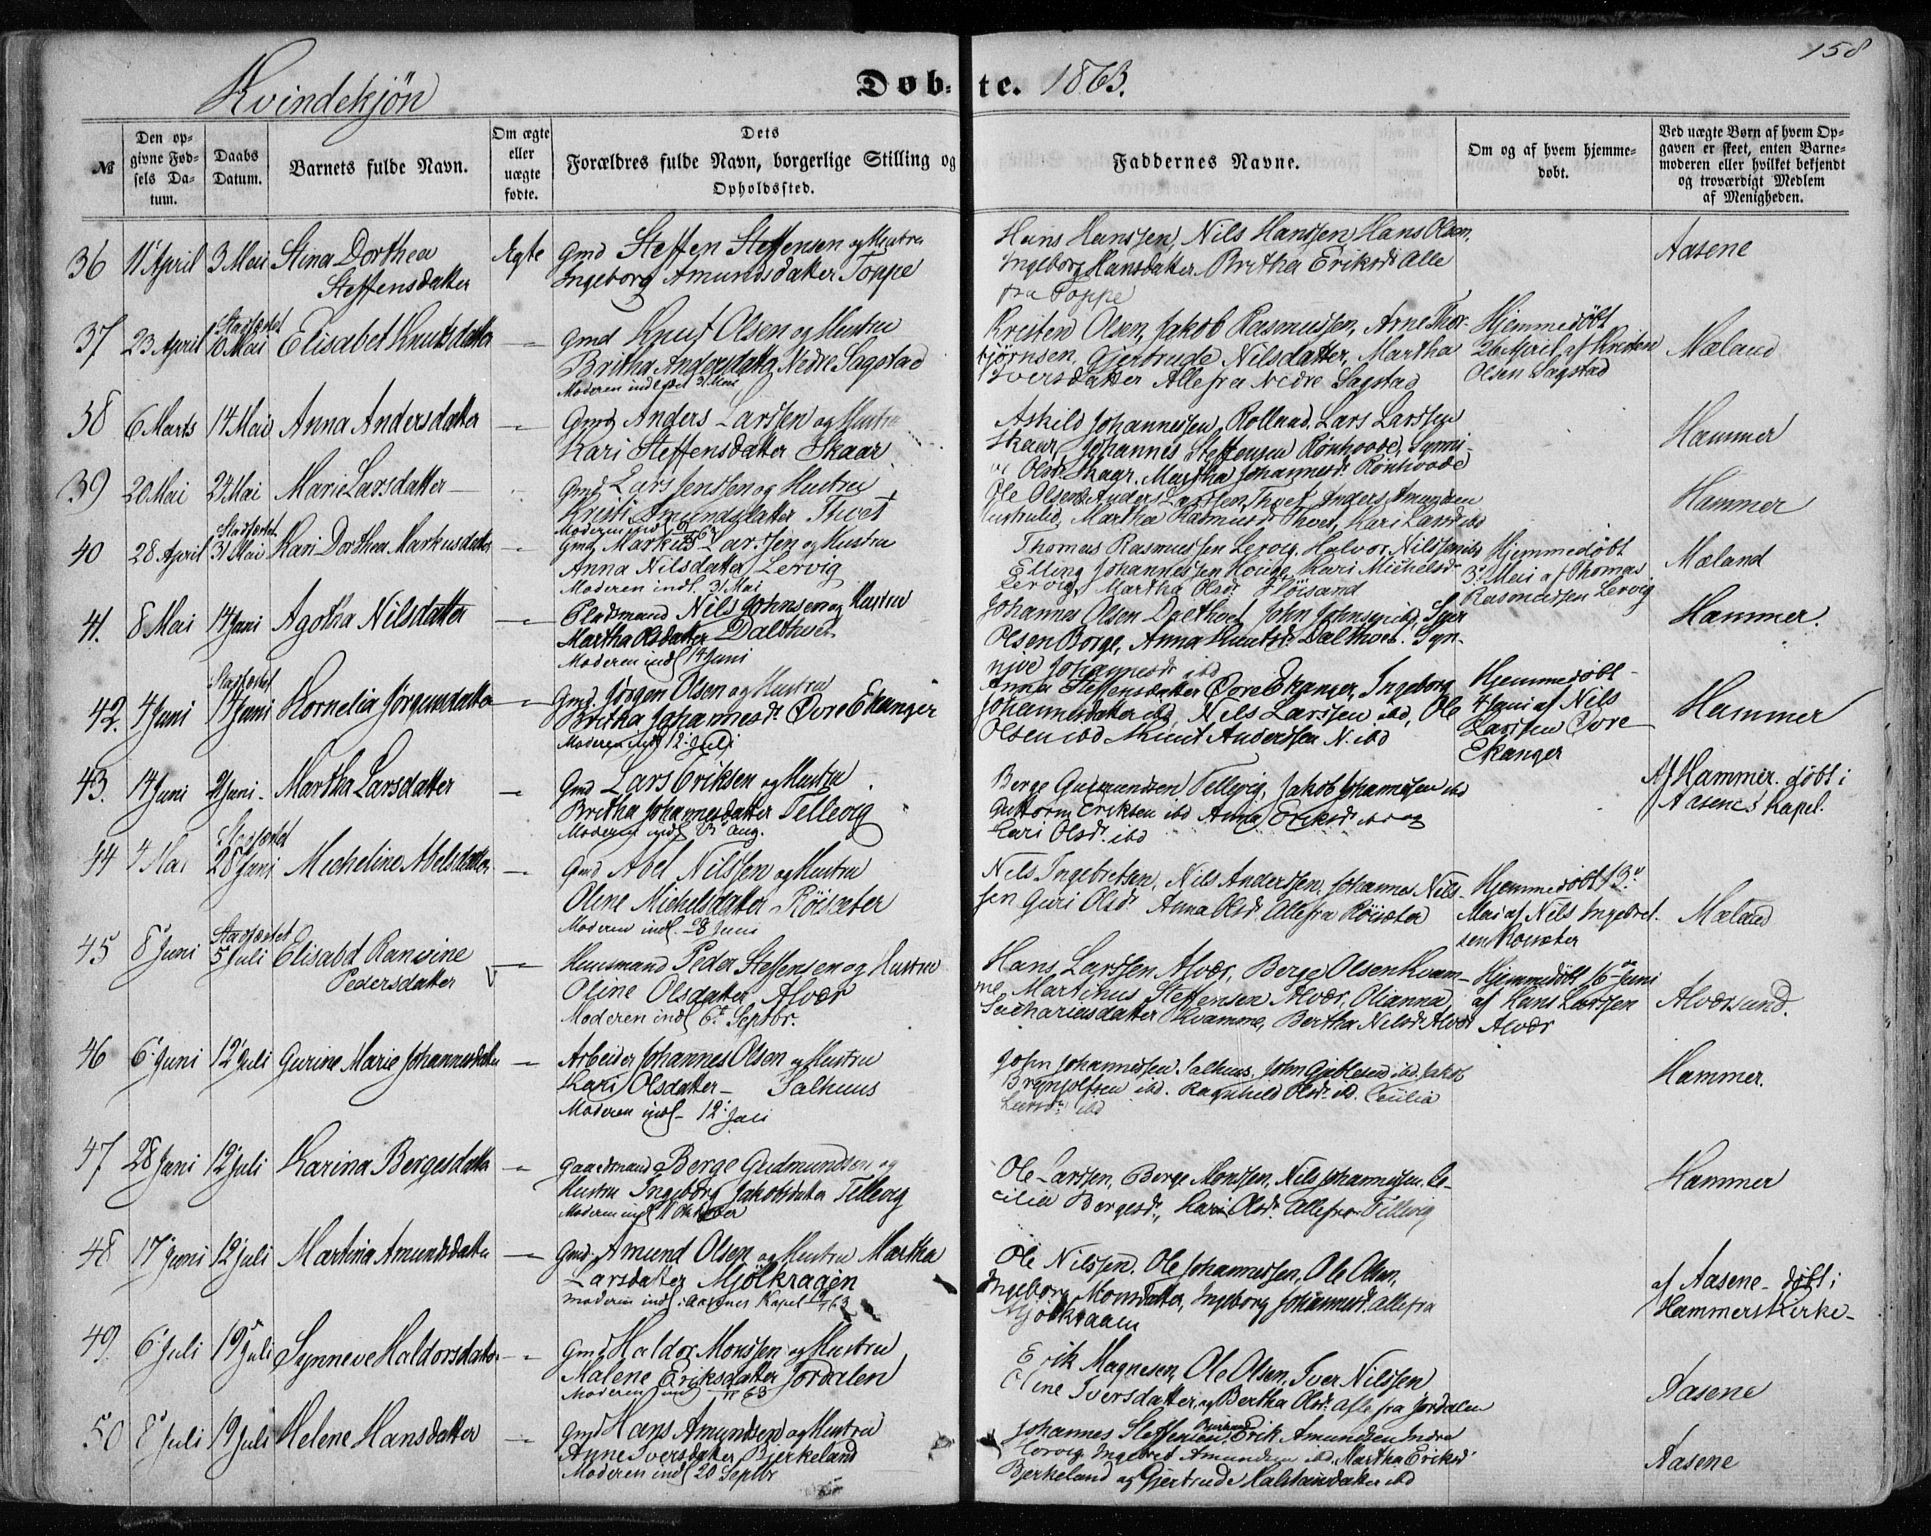 158
Kvindekjön
Døbte. 1863.
№
Den opgivne Fødsels Datum.
Daabs Datum.
Barnets fulde Navn.
Om ægte eller uægte fødte.
Dets Forældres fulde Navn, borgerlige Stilling og Opholdssted.
Faddernes Navne.
Om og af hvem hjemmedøbt.
Ved uægte Børn af hvem Opgaven er skeet, enten Barnemoderen eller hvilket bekjendt og troværdigt Medlem af Menigheden.
36 11 April 3 Mai Stina Dorthea
Steffensdatter
Ægte
Gmd Steffen Steffensen og Hustru
Ingeborg Amundsdatter Toppe
Hans Hanssen, Nils Hanssen, Hans Olsen,
Ingeborg Hansdatter, Britha Eriksdr Alle
fra Toppe
Aasene
37 23 April Stadfæstet
10 Mai Elisabet Knutsdatter —
Gmd Knut Olsen og Hustru
Britha Andersdatter Nedre Sagstad
Moderen indledet 31 Mai
Kristen Olsen, Jakob Rasmussen, Arne Thor-
björnsen, Gjertrude Nilsdatter, Martha
Iversdatter Alle fra Nedre Sagstad
Hjemmedöbt
26 April af Kristen
Olsen Sagstad
Mæland
38 6 Marts 14 Mai Anna Andersdatter —
Gmd Anders Larssen og Hustru
Kari Steffensdatter Skaar
Askild Johannessen, Rolland, Lars Larssen
Skaar, Johannes Steffensen Rönhovde, Synni-
ve Olsdr Skaar, Martha Johannesdr Rönhovde
Hammer
39 20 Mai 24 Mai Marie Larsdatter —
Gmd Lars Jenssen og Hustru
Kristi Amundsdatter Thvet
Ole Olsen, Anders Larssen Thvet, Anders Amundsen
Martha Rasmusdr Thvet, Kari Larsdr ibd
Hammer
40 28 April Stadfæstet
31 Mai Kari Dorthea Markusdatter —
Gmd Markus Larssen og Hustru
Anna Nilsdatter Lervig
Moderen indl. 31 Mai
Thomas Rasmussen Lervig, Halvor Nilssen ibd
Elling Johannessen Houge, Kari Michelsdr
Lervig, Martha Olsdr Flöisand
Hjemmedöbt
3 Mai af Thomas
Rasmussen Lervig
Mæland
41. 8 Mai 14 Juni Agotha Nilsdatter —
Pladsmand Nils Johnsen og Hustru
Martha Olsdatter Dalthvet
Moderen indl 14 Juni
Johannes Olsen Dalthvet John Johnsen ibd,
Olsen Borge, Anna Knutsdr Dalthvet. Syn-
nive Johannesdr ibd
Hammer.
42. 4 Juni Stadfæstet
14 Juni Kornelia Jörgensdatter —
Gmd. Jörgen Olsen og Hustru
Britha Johannesdr Övre Ekanger
Moderen indl 12 Juli
Anna Steffensdatter Övre Ekanger, Ingeborg
Johannesdatter ibd, Nils Larssen ibd, Ole
Olsen ibd Knut Anderssen N. ibd
Hjemmedöbt
4 Juni af Nils
Larssen Övre
Ekanger
Hammer
43. 14 Juni 21 Juni Martha Larsdatter —
Gmd Lars Eriksen og Hustru
Britha Johannesdatter Tellevig
Moderen indl Aug.
Berge Gudmundsen Tellevig, Jakob Johannessen ibd
Guttorm Eriksen ibd Anna Eriksdr ibd og
Kari Olsdr ibd
Af Hammer. döbt i
Aasenes Kapel.
44 4 Mai Stadfæstet
28 Juni Micheline Abelsdatter —
Gmd Abel Nilssen og Hustru
Oline Michelsdatter Röisæter
Moderen indl. 28 Juni
Nils Ingebretsen, Nils Anderssen, Johannes Nils-
sen Guri Olsdr Anna Olsdr Alle fra Röisæter
Hjemmedöbt 13
Mai af Nils Ingebret-
sen Röisæter
Mæland
45 8 Juni Stadfæstet
5 Juli Elisabet
Pedersdatter —
Huusmand Peder Steffensen og Hustru
Oline Olsdatter Alvær
Moderen indl 6t Septbr.
Hans Larssen Alvær, Berge Olsen Kvam-
me, Martinus Steffensen Alvær, Olianna
Sachariasdatter Kvamme, Bertha Nilsdr Alvær
Hjemmedöbt 16 Juni
af Hans Larssen
Alvær
Alværsund.
46 6 Juni 12 Juli Gurine Marie Johannesdatter —
Arbeider Johannes Olsen og Hustru
Kari Olsdatter — Salhuus
Moderen indl — 12 Juli
John Johannessen Salhuus, John Gjeblesen ibd. Jakob
Brynjolfsen ibd. Ragnhild Olsdr ibd. Cecilia
Larsdr ibd
Hammer.
47 28 Juni 12 Juli Karina Bergesdatter —
Gaardmand Berge Gudmundsen og
Hustru Ingeborg Jakobsdatter Tellevig
Moderen indl 11 Oktober
Ole Larssen, Berge Monssen, Nils Johannessen, Ce-
cilia Bergesdr, Kari Olsdr. Alle fra Tellevig
Hammer
48 17 Juni 12 Juli Martina Amundsdatter —
Gmd. Amund Olsen og Hustru Martha
Larsdatter Mjölkraaen
Moderen indl i Aasenes Kapel
Ole Nilssen. Ole Johannessen, Ole Olsen,
Ingeborg Monsdatter, Ingeborg Johannesdr. Alle fra
Mjölkraaen
af Aasene — döbt i
Hammers Kirke —
49. 6 Juli 19 Juli Synneve Haldorsdatter —
Gmd Haldor Monssen og Hustru
Malene Eriksdatter Jordalen
Erik Magnesen, Ole Olsen, Iver Nilssen
Oline Iversdatter og Bertha Olsdr. Alle fra Jordalen
Aasene
50 8 Juli 19 Juli Helene Hansdatter —
Gmd Hans Amundsen og Hustru
Anne Iversdatter Bjerkeland
Moderen indl 20 Septbr
Johannes Steffensen Erik Amundsen Indre
Horvig Ingebret Amundsen ibd, Martha Eriksdr
Bjerkeland og Gjertrude Halstensdatter ibd
Aasene